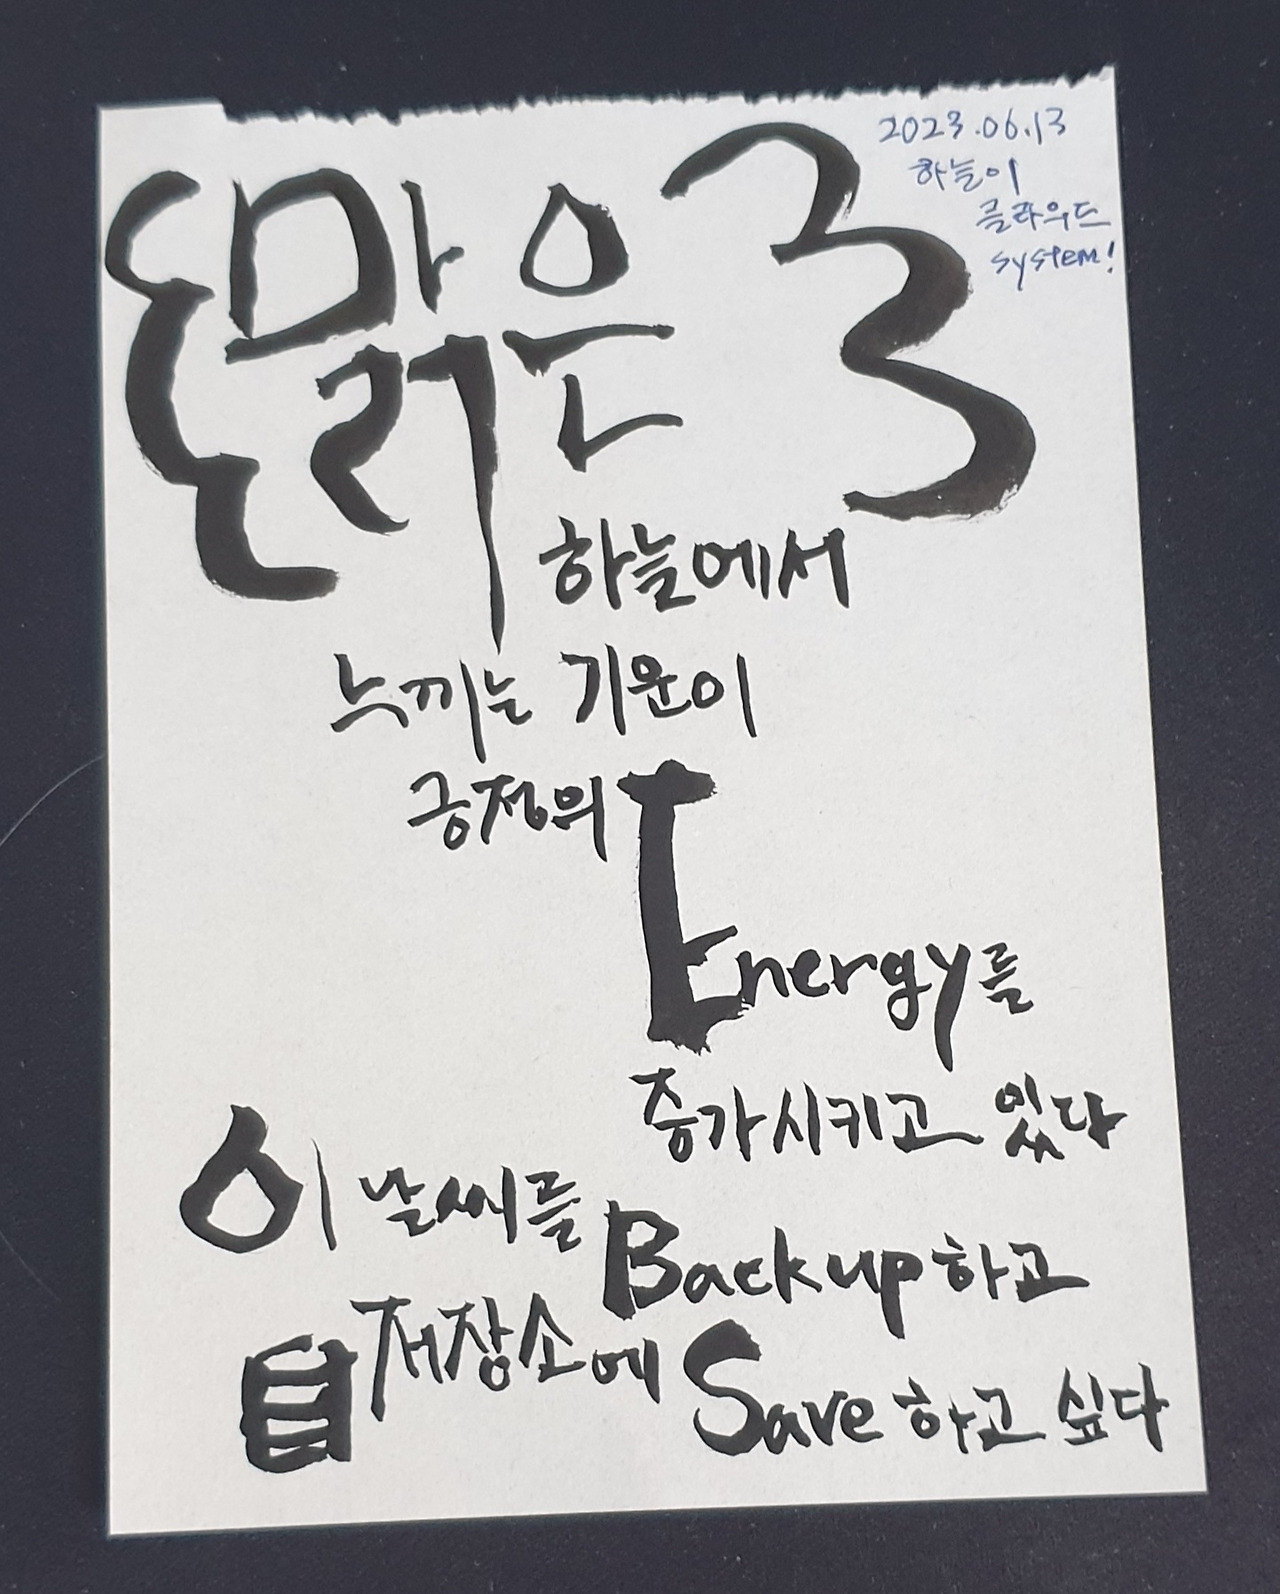 2023.06.13
하늘이
클라우드
system!
맑은
하늘에서
느끼는 기운이
긍정의
Energy를
증가시키고 있다
이 날씨를 Backup하고
저장소에 Save하고 싶다